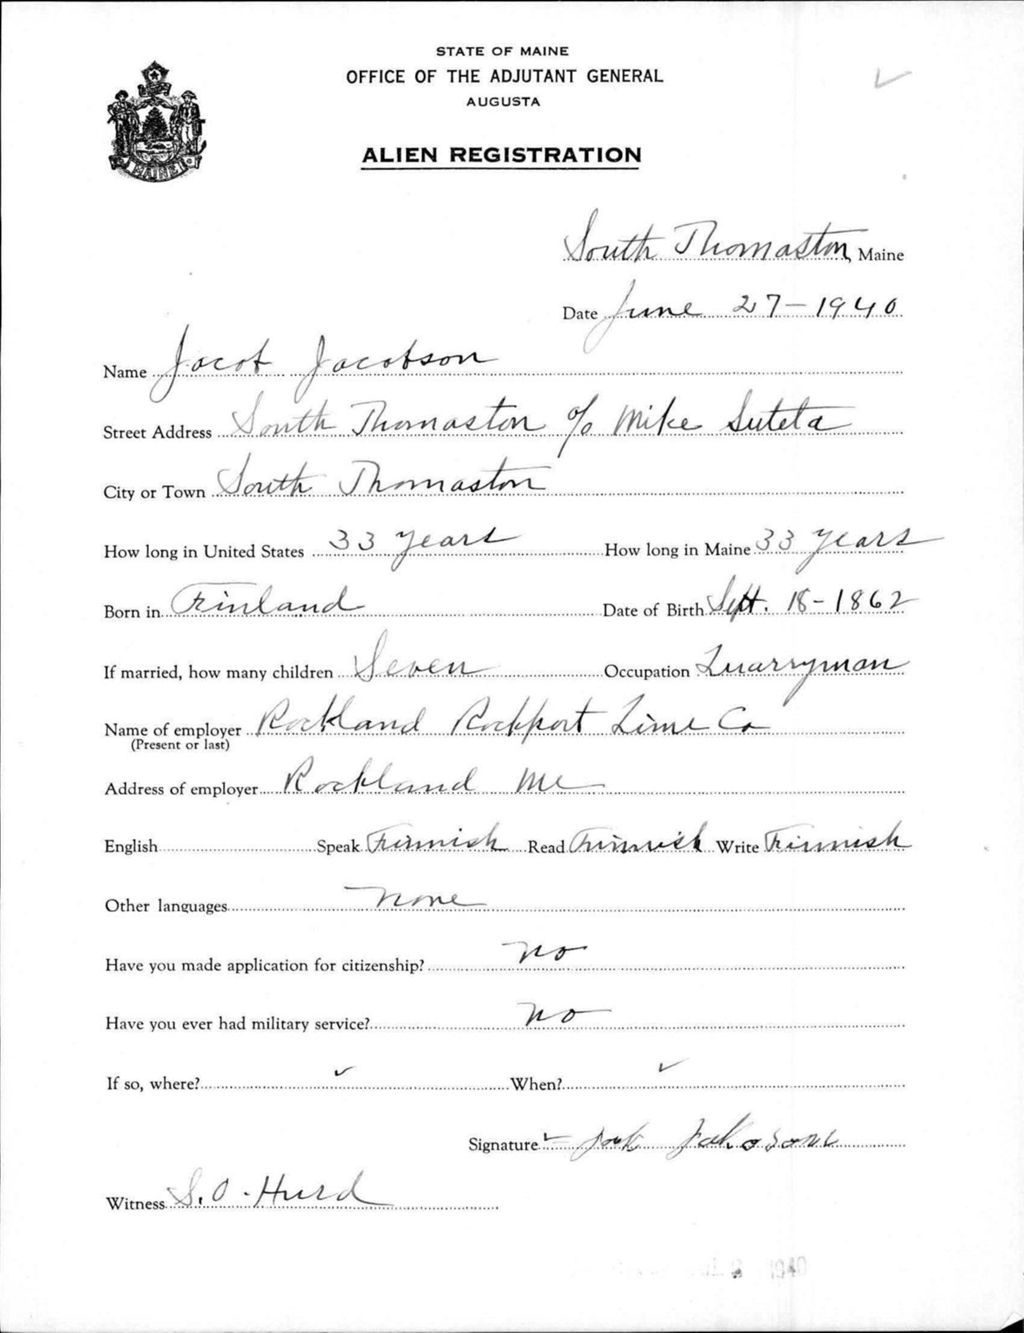 STATE OF MAINE
OFFICE OF THE ADJUTANT GENERAL
AUGUSTA
ALIEN REGISTRATION
MAINE
South Thomaston, Maine
Date June 27-1940
Name Jacob Jacobson
Street Address South Thomaston c/o Mike Suteta
City or Town South Thomaston
How long in United States 33 years How long in Maine 33 years
Born in Finland Date of Birth Sept. 18-1862
If married, how many children Seven Occupation Quarryman
Name of employer Rockland Rockport Lime Co
(Present or last)
Address of employer Rockland Me
English Speak Finnish Read Finnish Write Finnish
Other languages None
Have you made application for citizenship? No
Have you ever had military service? No
If so, where? ✓ When? ✓
Signature Jakosons
Witness S.O. Hurd
1940